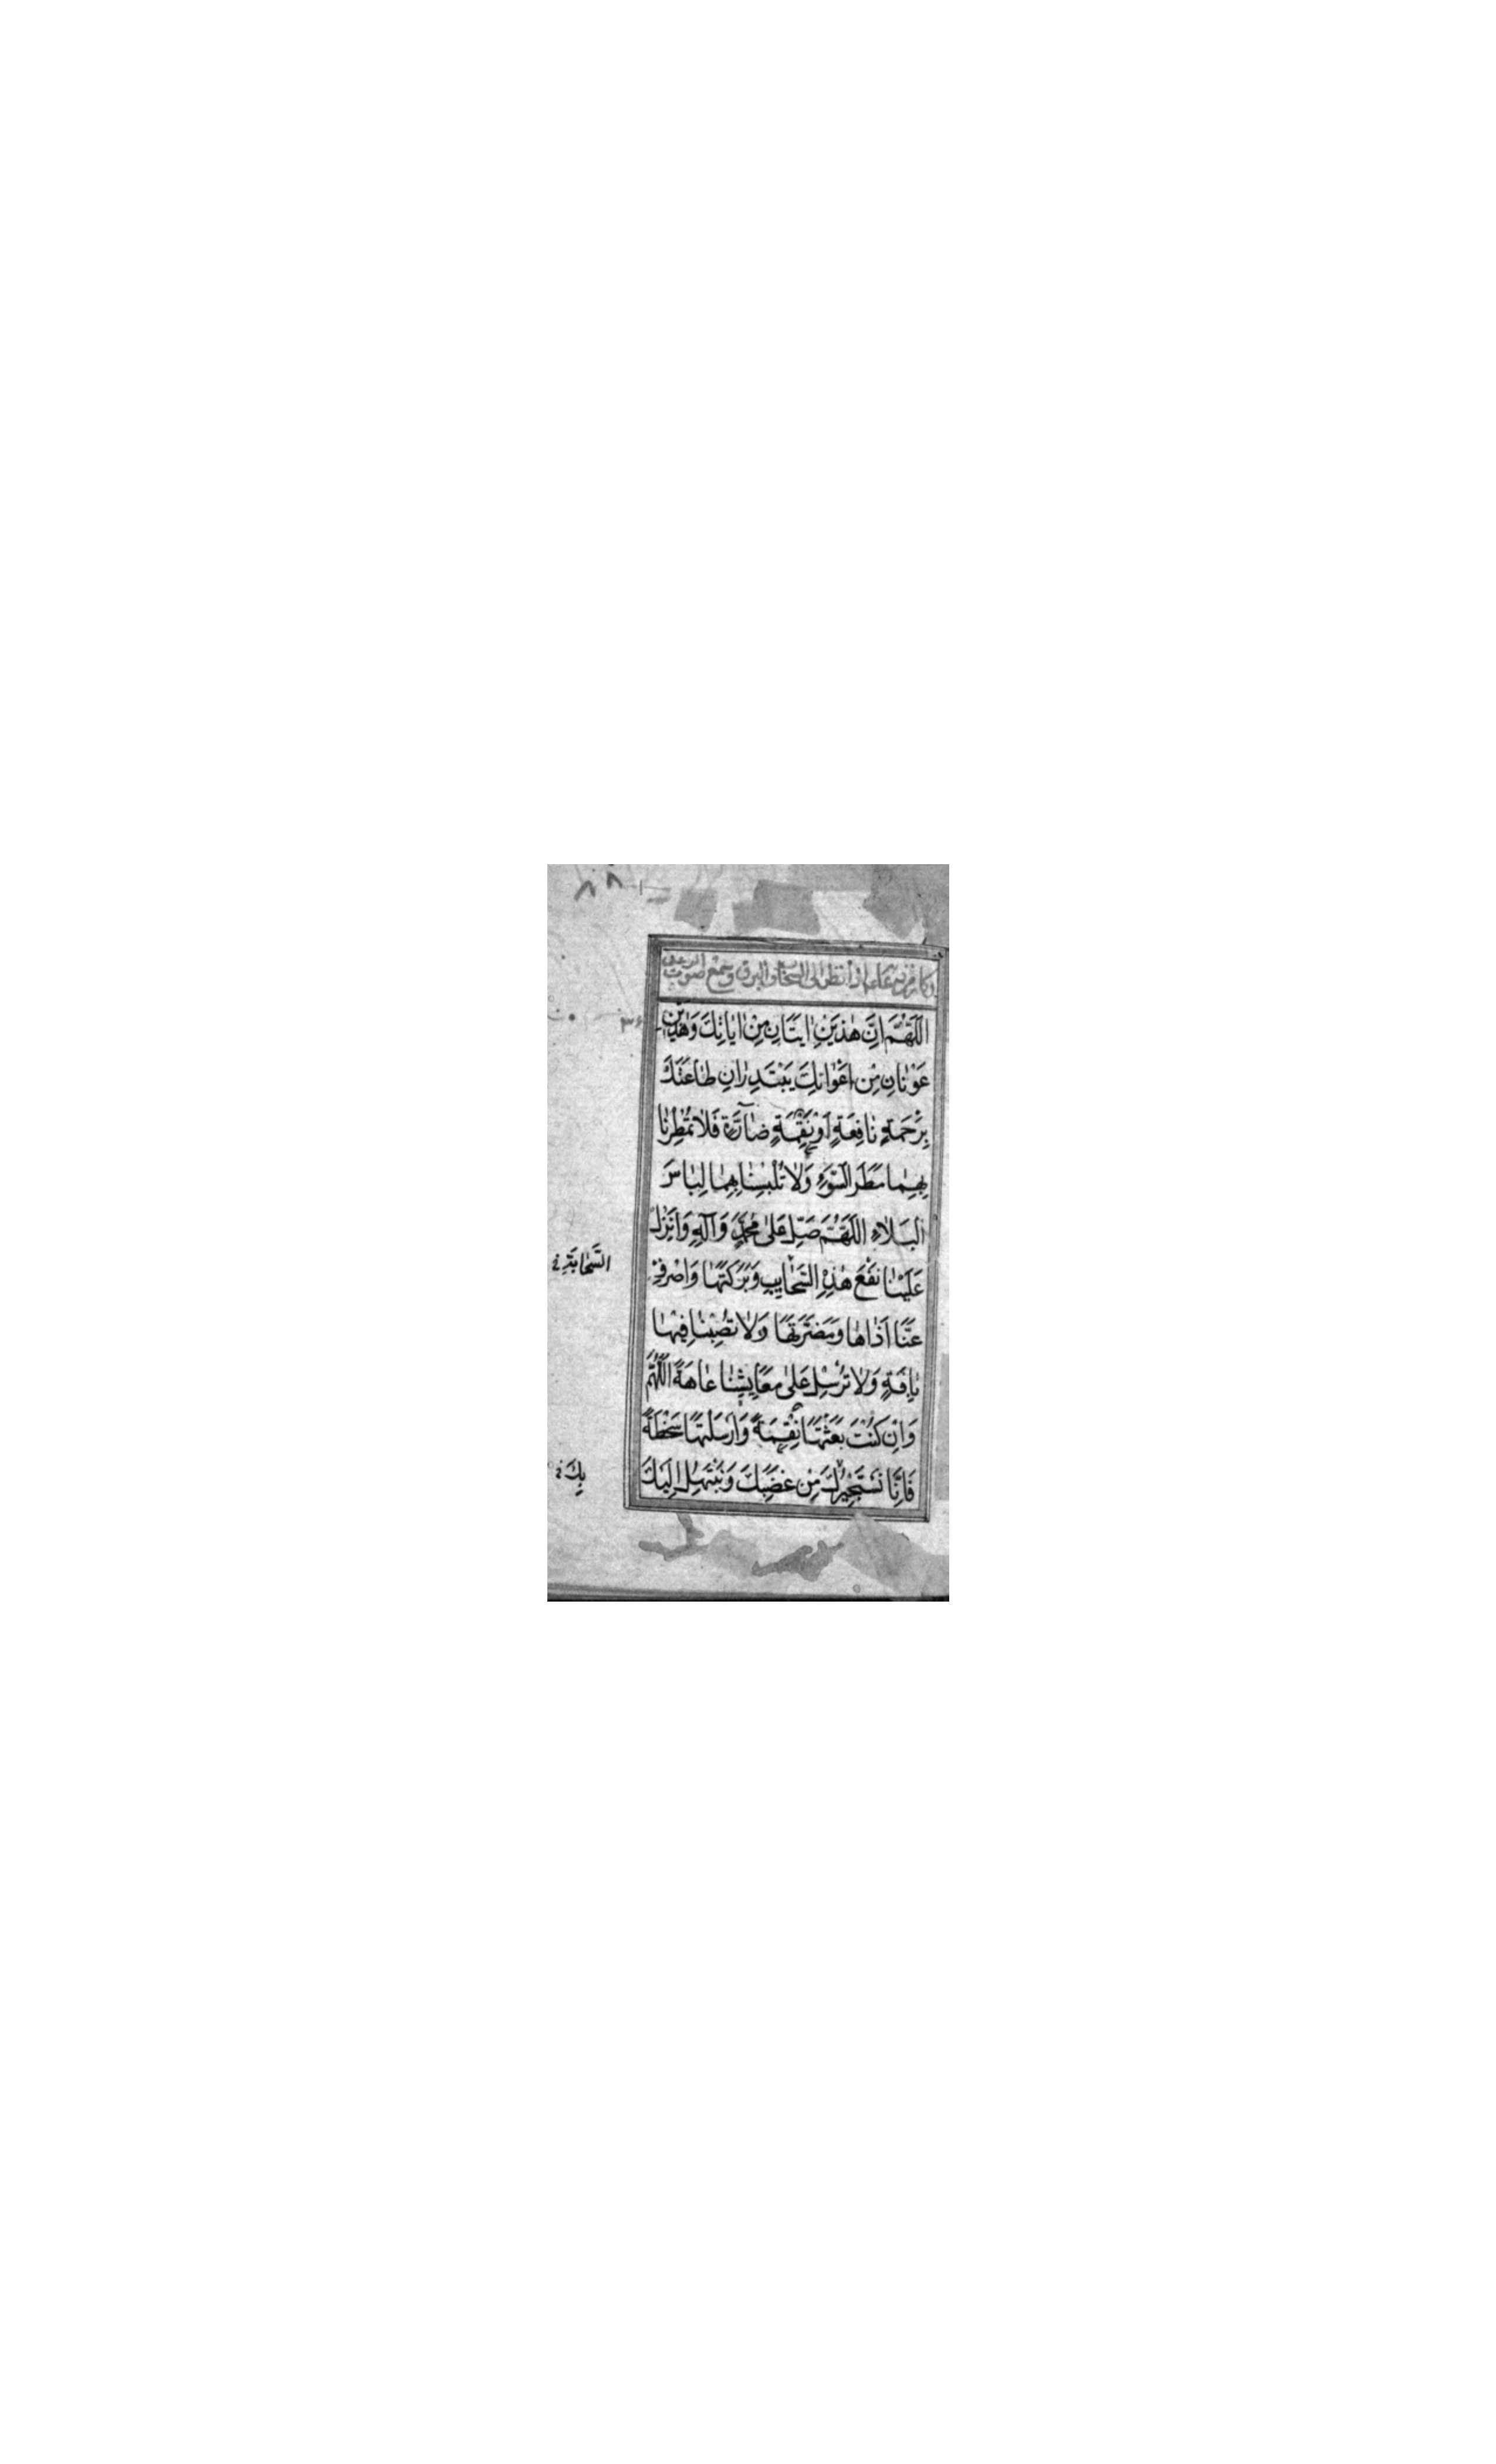 وكان من دعائه اذا نظر الى السحاب والبرق وسمع صوت الرعد
اَللّٰهُمَّ اِنَّ هٰذَيْنِ اٰيَتَانِ مِنْ اٰيَاتِكَ وَهٰذَيْنِ
عَوْنَانِ مِنْ اَعْوَانِكَ يَبْتَدِرَانِ طَاعَتَكَ
بِرَحْمَةٍ نَافِعَةٍ اَوْ نَقِمَةٍ ضَآرَّةٍ فَلَا تُمْطِرْنَا
بِهِمَا مَطَرَ السَّوْءِ وَلَا تُلْبِسْنَا بِهِمَا لِبَاسَ
الْبَلَاءِ اَللّٰهُمَّ صَلِّ عَلٰى مُحَمَّدٍ وَآلِهِ وَاَنْزِلْ
عَلَيْنَا نَفْعَ هٰذِهِ السَّحَايِبِ وَبَرَكَتَهَا وَاصْرِفْ
عَنَّا اَذَاهَا وَمَضَرَّتَهَا وَلَا تُصِبْنَا فِيهَا
بِاٰفَةٍ وَلَا تُرْسِلْ عَلٰى مَعَايِشِنَا عَاهَةً اَللّٰهُمَّ
وَاِنْ كُنْتَ بَعَثْتَهَا نِقْمَةً وَاَرْسَلْتَهَا سَخْطَةً
فَاِنَّا نَسْتَجِيرُكَ مِنْ غَضَبِكَ وَنَبْتَهِلُ اِلَيْكَ
٣٦
السَّحَابَةِ
بِكَ